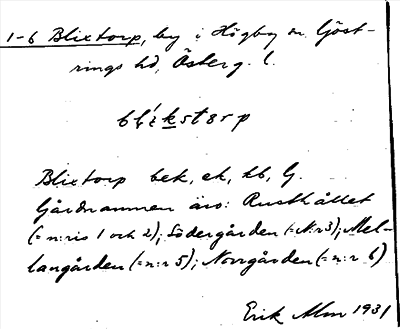 1-6 Blixtorp, by i Högby sn. Göst-
rings hd, Österg. l.
Blixtorp bek, ek, kb, G.
Gårdnamnen äro: Rusthållet
(= n:ris 1 och 2); Södergården (= N:r 3); Mel-
langården (= n:r 5); Norrgården (= n:r 6)
Erik Alm 1931